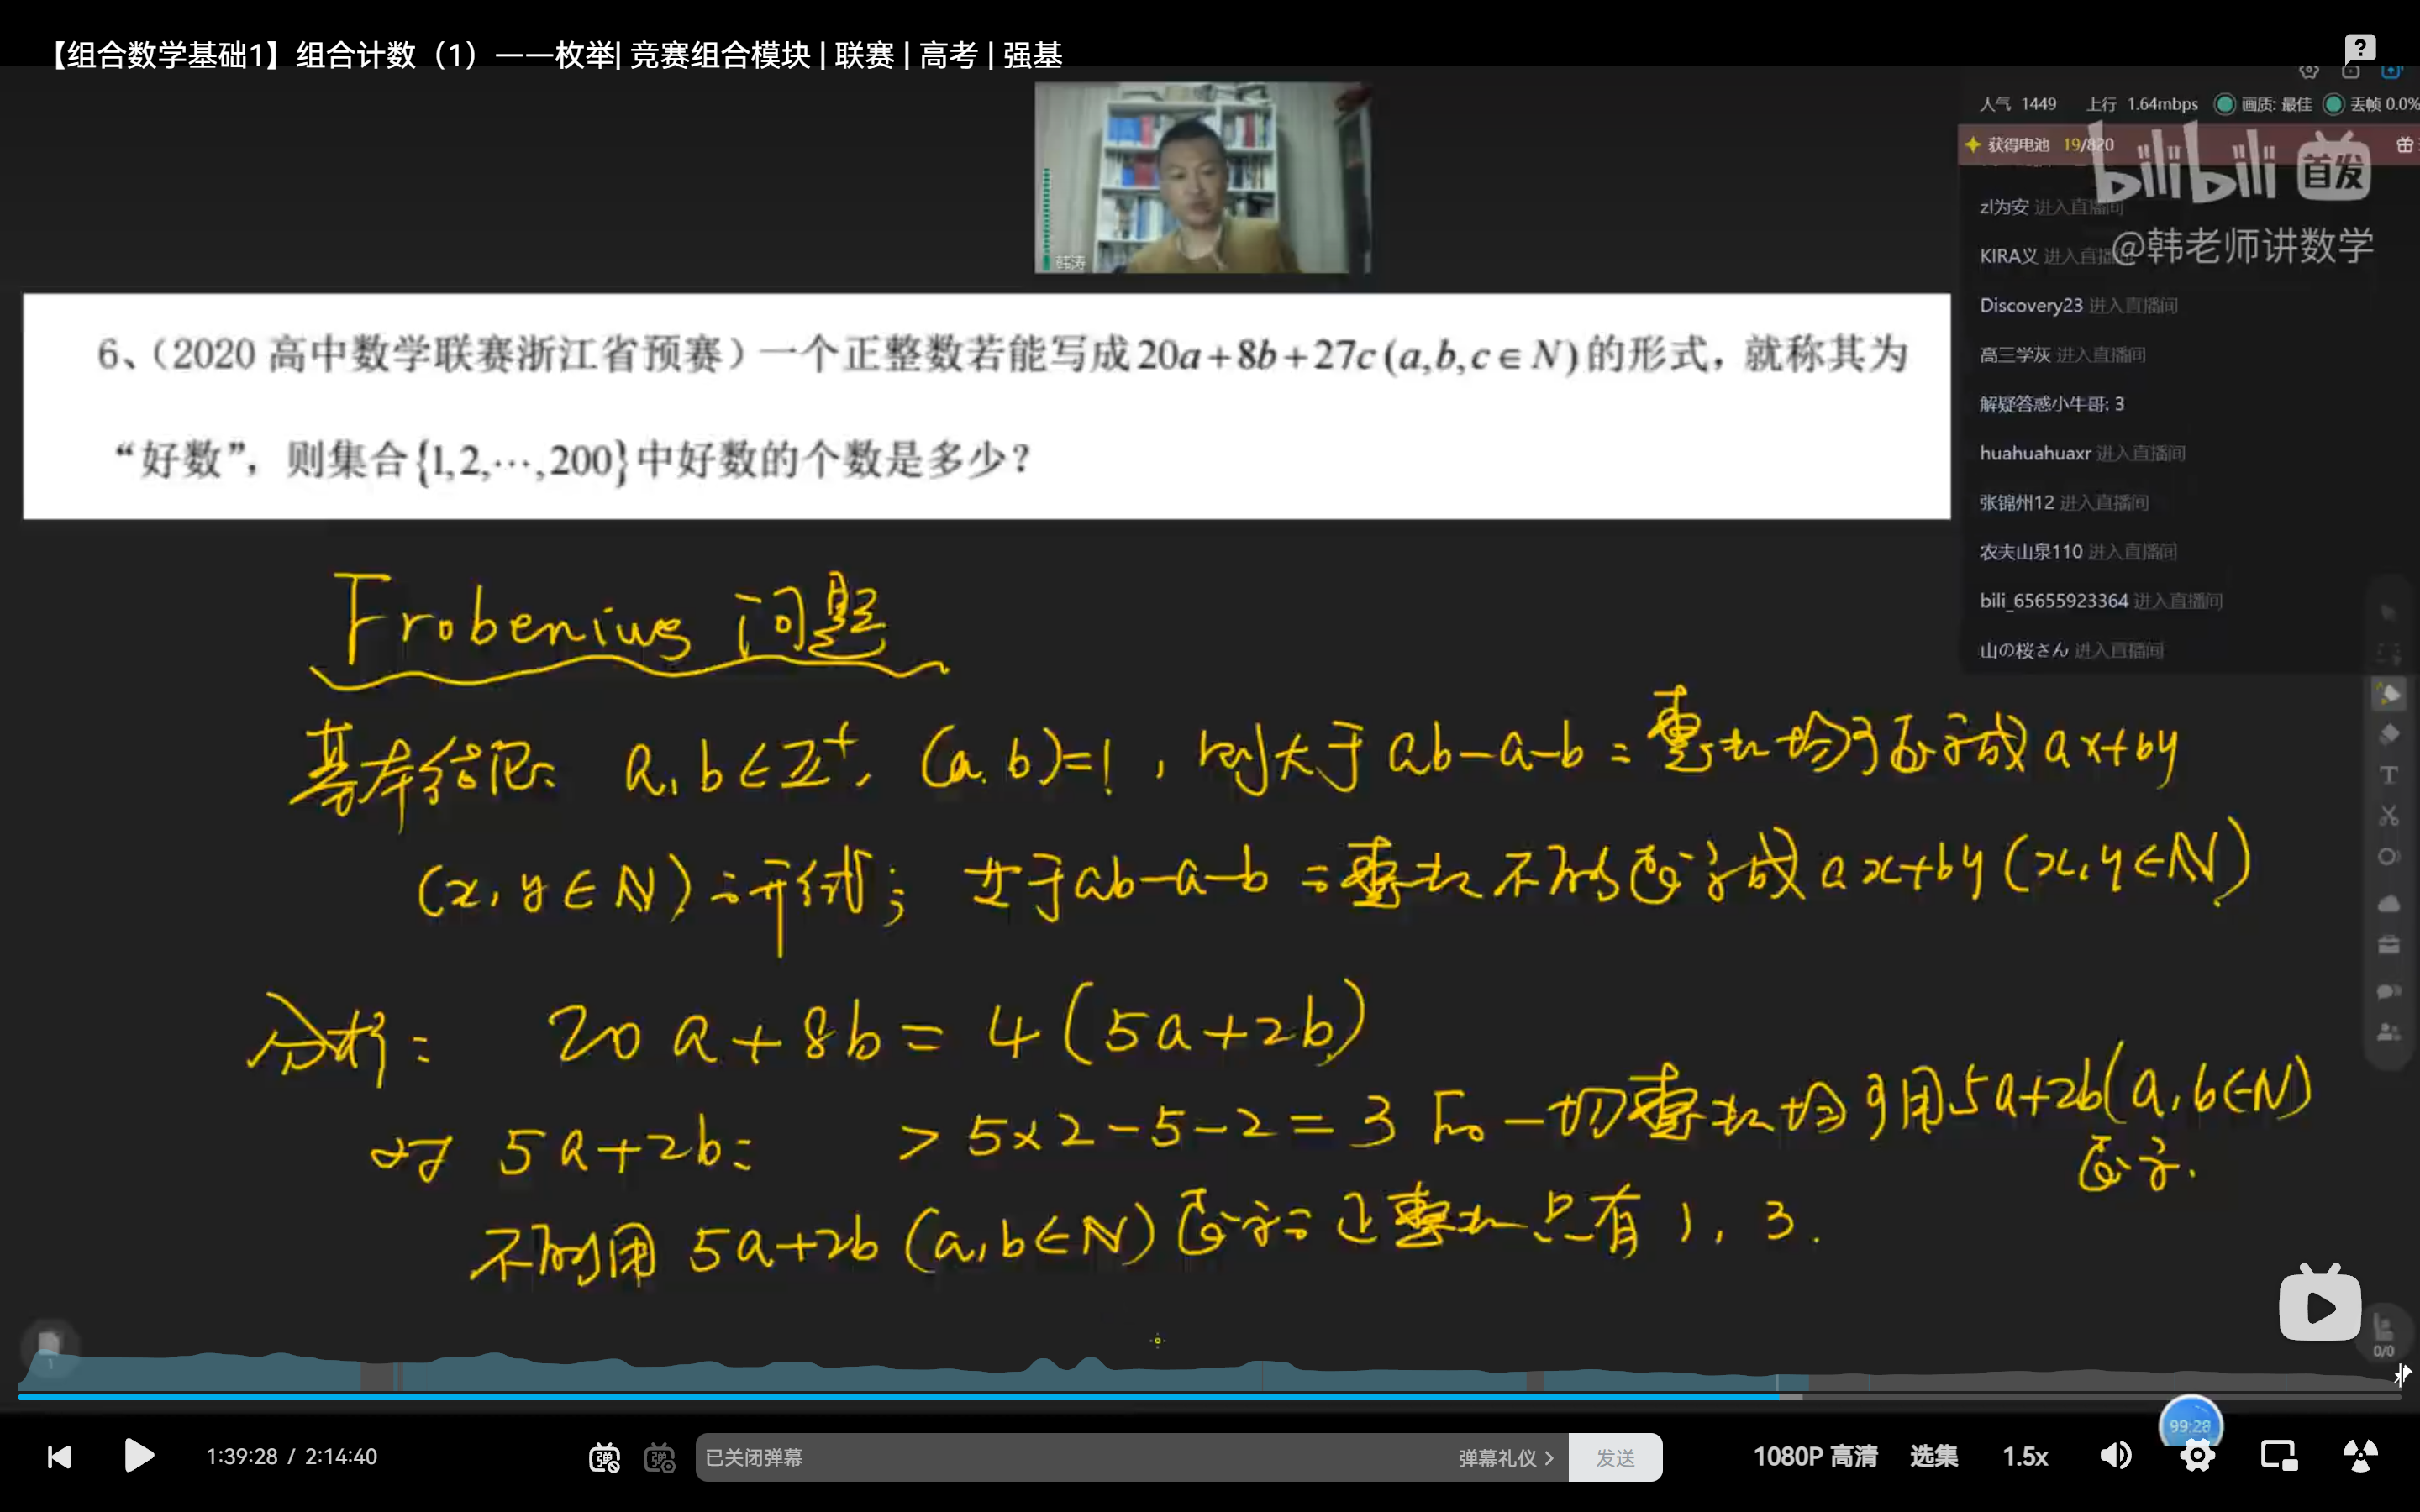 【组合数学基础1】组合计数（1）——枚举| 竞赛组合模块 | 联赛 | 高考 | 强基
人气 1449 上行 1.64mbps 画质: 最佳 丢帧 0.0%
获得电池 19/820
bilibili 首发
@韩老师讲数学
韩涛
zl为安 进入直播间
KIRA义 进入直播间
Discovery23 进入直播间
高三学灰 进入直播间
解疑答惑小牛哥: 3
huahuahuaxr 进入直播间
张锦州12 进入直播间
农夫山泉110 进入直播间
bili_65655923364 进入直播间
山の桜さん 进入直播间
6、（2020 高中数学联赛浙江省预赛）一个正整数若能写成20a+8b+27c(a,b,c∈N)的形式，就称其为
“好数”，则集合{1,2,⋯,200}中好数的个数是多少？
Frobenius 问题
基本结论: a, b∈Z⁺, (a, b)=1, 则大于 ab-a-b 的整数均可表示成 ax+by
(x, y∈N) 的形式; 等于 ab-a-b 的整数不能表示成 ax+by (x, y∈N)
分析: 20a+8b = 4(5a+2b)
对 5a+2b: > 5×2-5-2=3 的一切整数均可用 5a+2b(a,b∈N)
表示.
不能用 5a+2b (a,b∈N) 表示的正整数只有 1, 3.
1
0/0
99:28
1:39:28 / 2:14:40
弹
弹
已关闭弹幕
弹幕礼仪 >
发送
1080P 高清
选集
1.5x